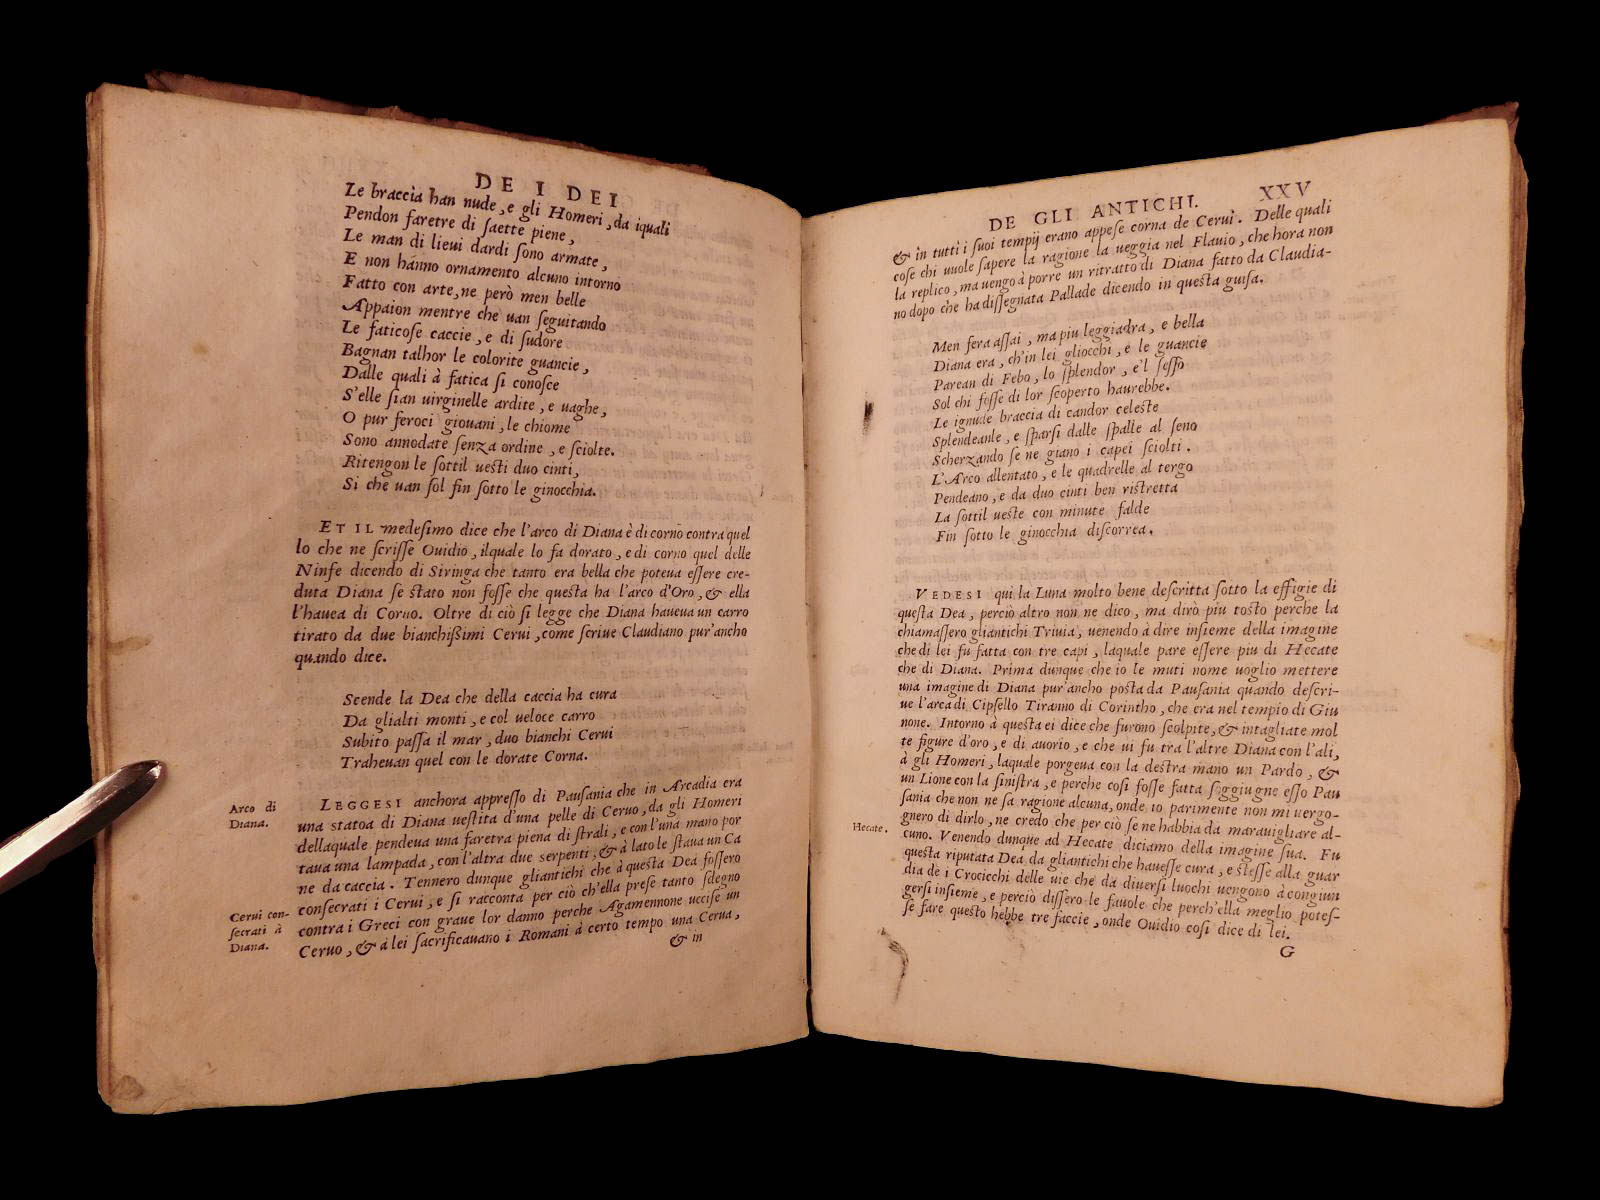 DE I DEI
Le braccia han nude, e gli Homeri, da iquali
Pendon faretre di ſaette piene,
Le man di lieui dardi ſono armate,
E non hanno ornamento alcuno intorno
Fatto con arte, ne però men belle
Appaion mentre che uan ſeguitando
Le faticoſe caccie, e di ſudore
Bagnan talhor le colorite guancie,
Dalle quali à fatica ſi conoſce
S'elle ſian uirginelle ardite, e uaghe,
O pur feroci giouani, le chiome
Sono annodate ſenza ordine, e ſciolte.
Ritengon le ſottil ueſti duo cinti,
Si che uan ſol fin ſotto le ginocchia.
ET IL medeſimo dice che l'arco di Diana è di corno contra quel
lo che ne ſcriſſe Ouidio, ilquale lo fa dorato, e di corno quel delle
Ninfe dicendo di Siringa che tanto era bella che poteua eſſere cre-
duta Diana ſe ſtato non foſſe che queſta ha l'arco d'Oro, & ella
l'hauea di Corno. Oltre di ciò ſi legge che Diana haueua un carro
tirato da due bianchiſsimi Cerui, come ſcriue Claudiano pur'ancho
quando dice.
Scende la Dea che della caccia ha cura
Da glialti monti, e col ueloce carro
Subito paſſa il mar, duo bianchi Cerui
Traheuan quel con le dorate Corna.
Arco di
Diana.
LEGGESI anchora appreſſo di Pauſania che in Arcadia era
una ſtatoa di Diana ueſtita d'una pelle di Ceruo, da gli Homeri
dellaquale pendeua una faretra piena di ſtrali, e con l'una mano por
taua una lampada, con l'altra due ſerpenti, & à lato le ſtaua un Ca
ne da caccia. Tennero dunque gliantichi che à queſta Dea foſſero
conſecrati i Cerui, e ſi racconta per ciò ch'ella preſe tanto ſdegno
contra i Greci con graue lor danno perche Agamennone ucciſe un
Ceruo, & à lei ſacrificauano i Romani à certo tempo una Cerua,
Cerui con-
ſecrati à
Diana.
& in
DE GLI ANTICHI. XXV
& in tutti i ſuoi tempij erano appeſe corna de Cerui. Delle quali
coſe chi uuole ſapere la ragione la ueggia nel Flauio, che hora non
la replico, ma uengo à porre un ritratto di Diana fatto da Claudia-
no dopo che ha diſſegnata Pallade dicendo in queſta guiſa.
Men fera aſſai, ma piu leggiadra, e bella
Diana era, ch'in lei gliocchi, e le guancie
Parean di Febo, lo ſplendor, e'l ſeſſo
Sol chi foſſe di lor ſcoperto haurebbe.
Le ignude braccia di candor celeſte
Splendeanle, e ſparſi dalle ſpalle al ſeno
Scherzando ſe ne giano i capei ſciolti.
L'Arco allentato, e le quadrelle al tergo
Pendeano, e da duo cinti ben riſtretta
La ſottil ueſte con minute falde
Fin ſotto le ginocchia diſcorrea.
VEDESI qui la Luna molto bene deſcritta ſotto la effigie di
queſta Dea, perciò altro non ne dico, ma dirò piu toſto perche la
chiamaſſero gliantichi Triuia, uenendo à dire inſieme della imagine
che di lei fu fatta con tre capi, laquale pare eſſere piu di Hecate
che di Diana. Prima dunque che io le muti nome uoglio mettere
una imagine di Diana pur'ancho poſta da Pauſania quando deſcri-
ue l'arca di Cipſello Tiranno di Corintho, che era nel tempio di Giu
none. Intorno à queſta ei dice che furono ſcolpite, & intagliate mol
te figure d'oro, e di auorio, e che ui fu tra l'altre Diana con l'ali,
à gli Homeri, laquale porgeua con la deſtra mano un Pardo, &
un Lione con la ſiniſtra, e perche coſi foſſe fatta ſoggiugne eſſo Pau
ſania che non ne ſa ragione alcuna, onde io parimente non mi uergo-
gnero di dirlo, ne credo che per ciò ſe ne habbia da marauigliare al-
Hecate.
cuno. Venendo dunque ad Hecate diciamo della imagine ſua. Fu
queſta riputata Dea da gliantichi che haueſſe cura, e ſteſſe alla guar
dia de i Crocicchi delle uie che da diuerſi luochi uengono à congiun
gerſi inſieme, e perciò diſſero le fauole che perch'ella meglio poteſ-
ſe fare queſto hebbe tre faccie, onde Ouidio coſi dice di lei.
G